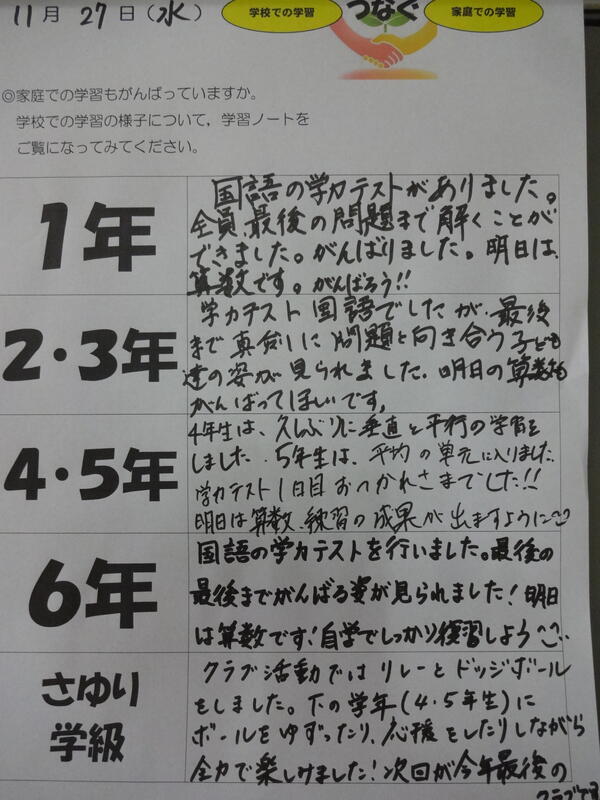 11月 27日(水)
学校での学習
つなぐ
家庭での学習
◎家庭での学習もがんばっていますか。
学校での学習の様子について，学習ノートを
ご覧になってみてください。
1年
国語の学力テストがありました。
全員最後の問題まで解くことが
できました。がんばりました。明日は、
算数です。がんばろう!!
2・3年
学力テスト国語でしたが、最後
まで真剣に問題と向き合う子ども
達の姿が見られました。明日の算数も
がんばってほしいです。
4・5年
4年生は、久しぶりに垂直と平行の学習を
しました。5年生は、平均の単元に入りました。
学力テスト1日目おつかれさまでした!!
明日は算数、練習の成果が出ますように
6年
国語の学力テストを行いました。最後の
最後までがんばる姿が見られました!明日
は算数です!自学でしっかり復習しよう
さゆり
学級
クラブ活動ではリレーとドッジボール
をしました。下の学年(4・5年生)に
ボールをゆずったり、応援をしたりしながら
全力で楽しけました!次回が今年最後の
クラブです